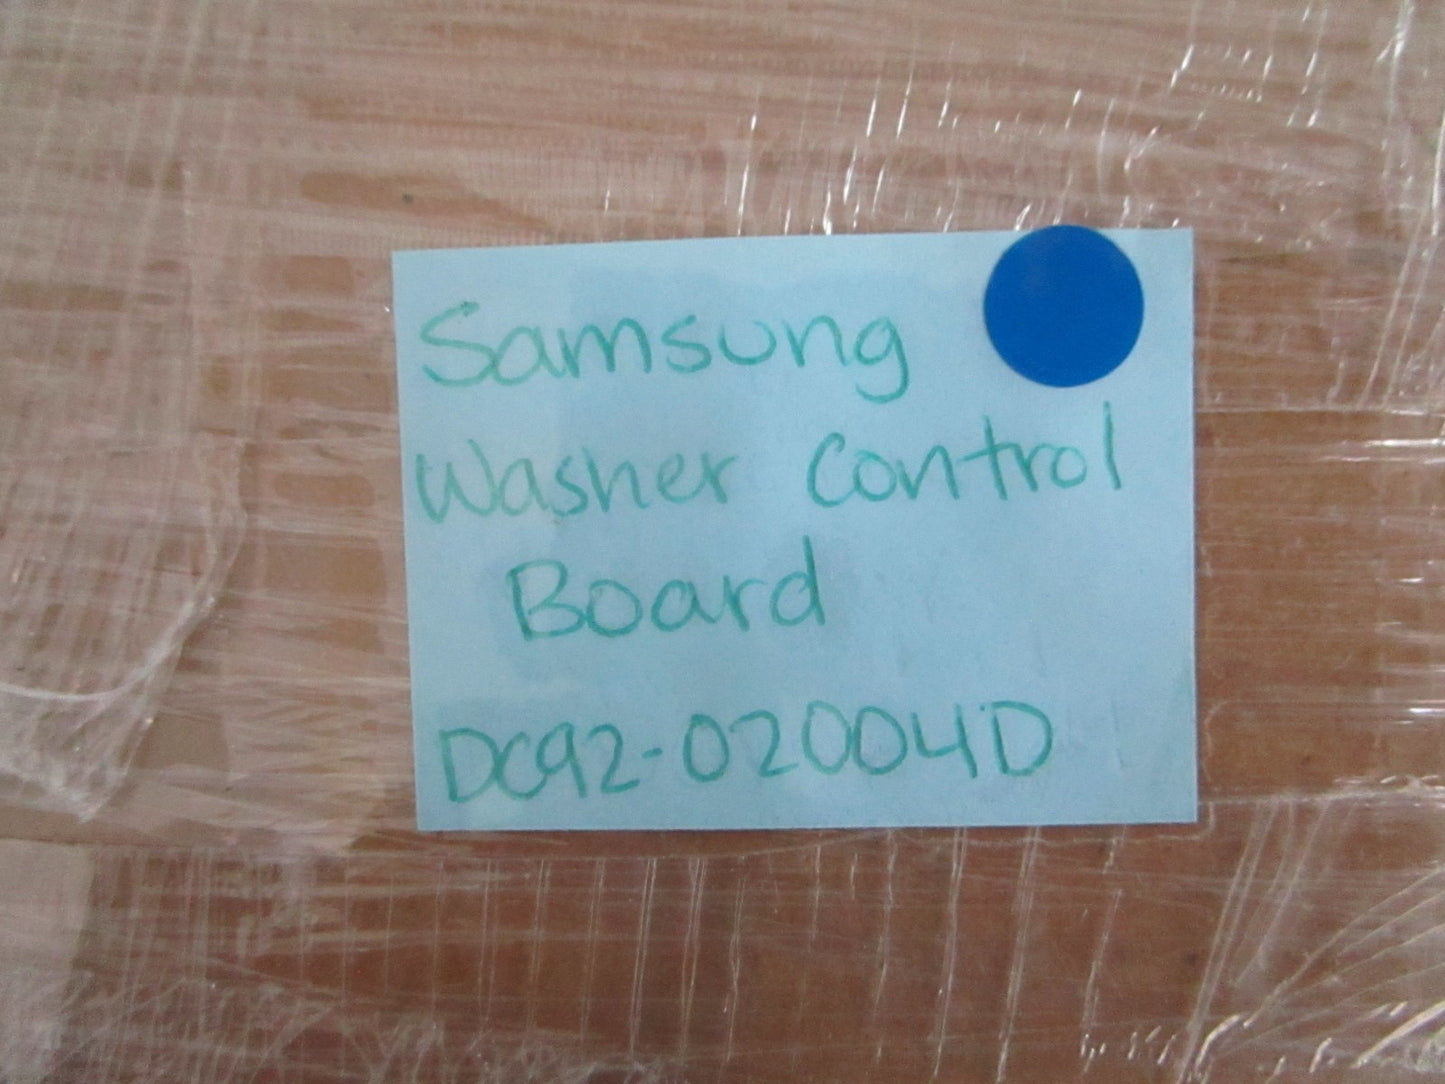 Samsung
Washer Control
Board
DC92-02004D